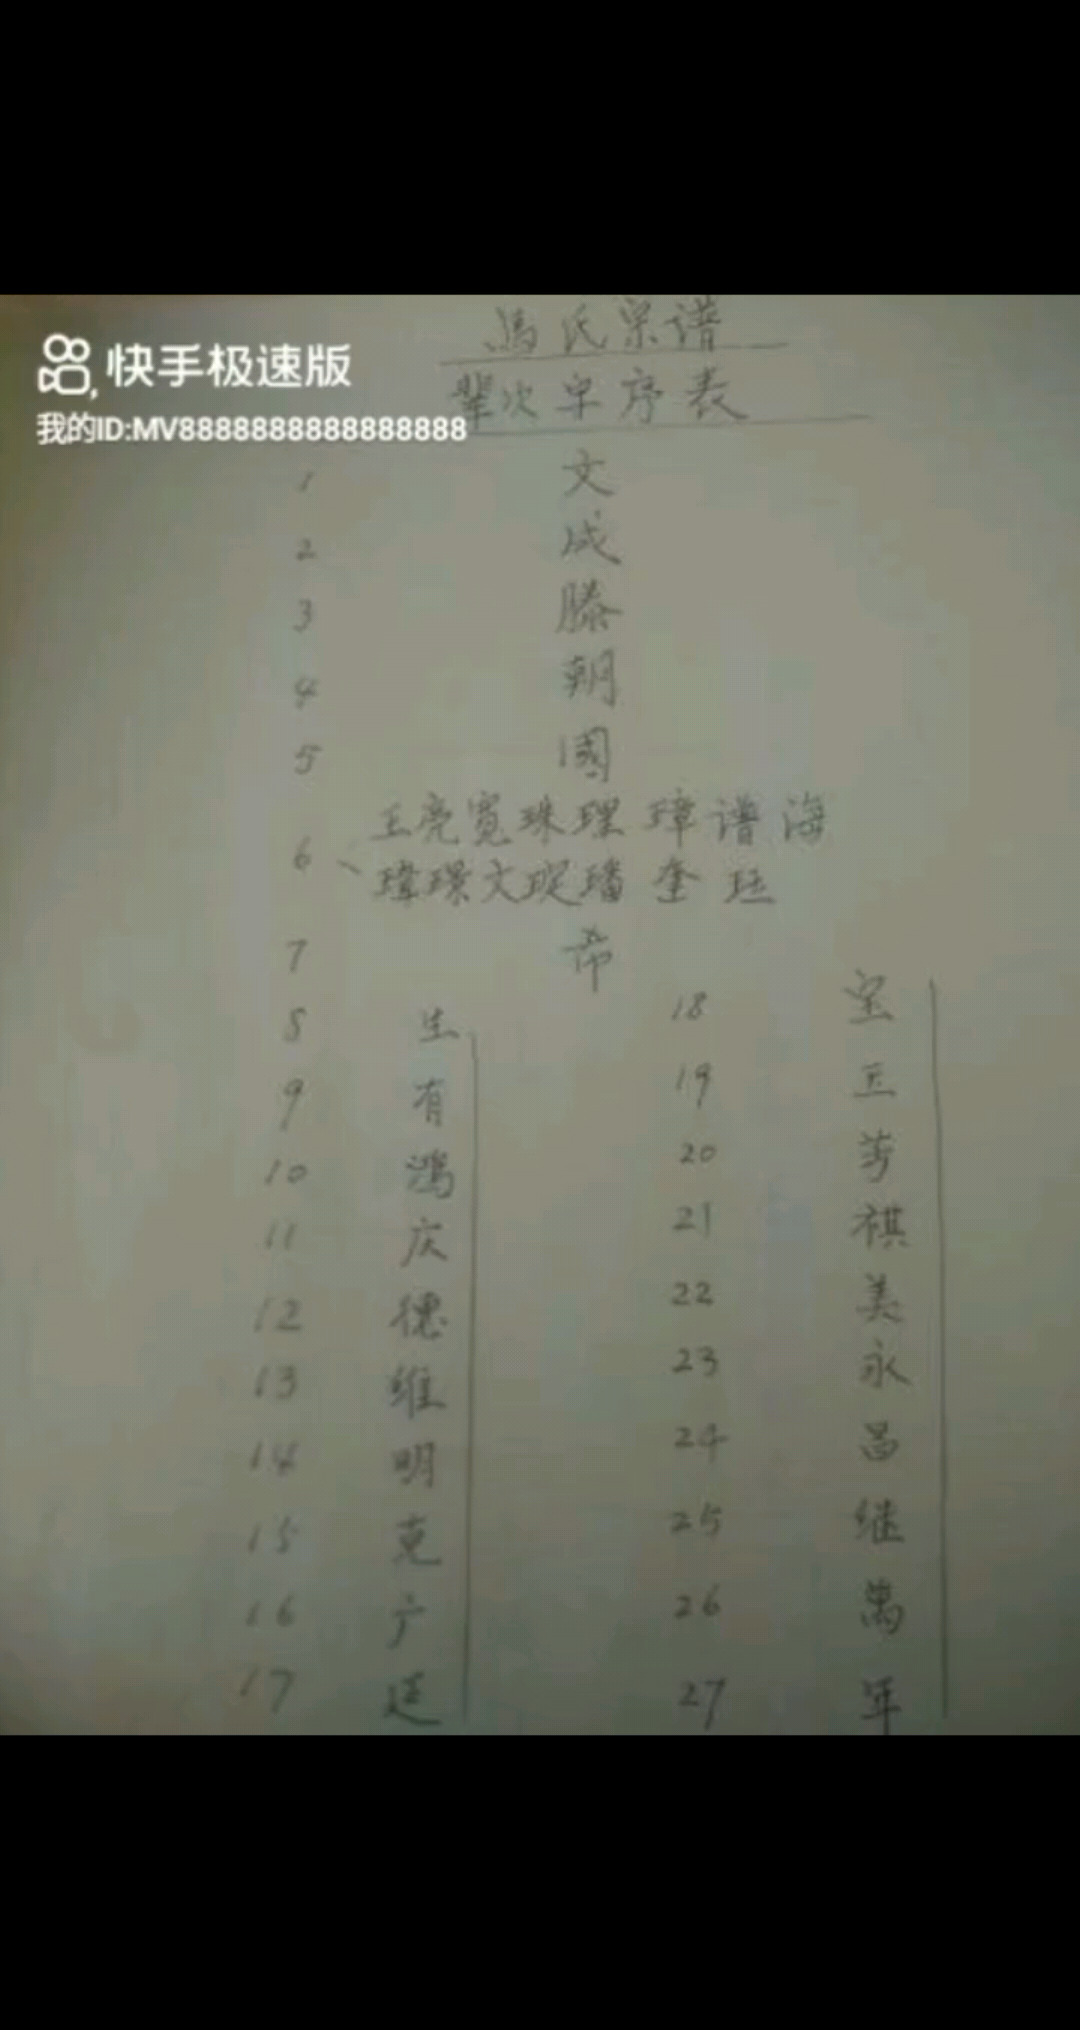 馬氏宗谱
快手极速版
輩次字序表
我的ID:MV8888888888888888
1 文
2 成
3 滕
4 朝
5 國
王亮寬珠理 璋谱海
6
瑋璟文琔璠 奎 珏
7 希
8 生
9 有
10 鴻
11 庆
12 德
13 维
14 明
15 克
16 广
17 廷
18 宝
19 玉
20
21 祺
22 美
23 永
24 昌
25 继
26 萬
27 年